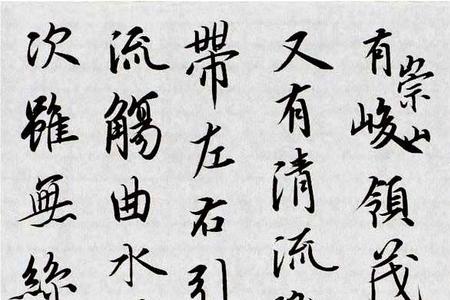 有崇山峻領茂
又有清流
帶左右引
流觴曲水
次雖無絲